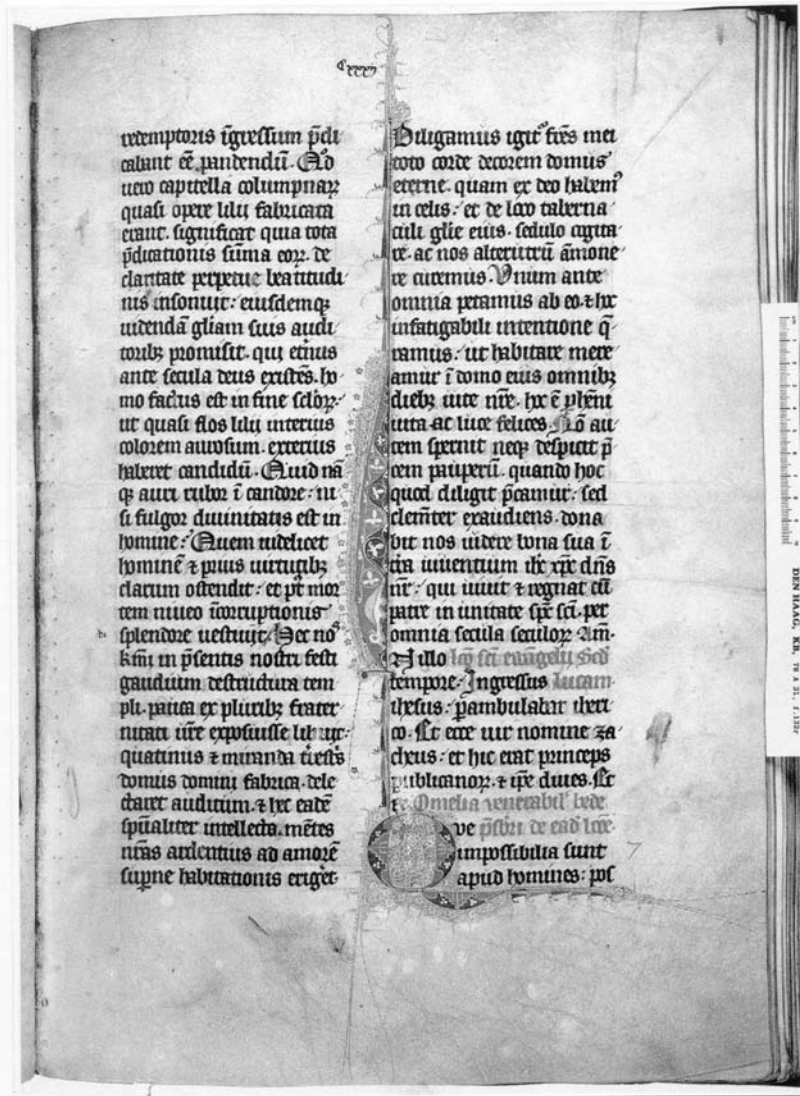 cxxxij
redemptoris īgressum p̄di
cabant eē pandendū. Ad
uero capitella columpnaꝝ
quasi opere lilii fabricata
erant. significat quia tota
p̄dicationis sūma eoꝝ. de
claritate perpetue beatitudi
nis insonuit: eiusdemqꝫ
uidendā gl̄iam suis audi
toribꝫ promisit. qui et̄nus
ante secula deus existēs. ho
mo factus est in fine sc̄loꝝ:
ut quasi flos lilii interius
colorem auroſum. exterius
haberet candidū. Quid nā
qꝫ auri rubor ī candore: ni
si fulgor diuinitatis est in
homine: Quem uidelicet
hominē ⁊ prius uirtutibꝫ
clarum ostendit: et pꝰt mor
tem niueo īcorruptionis
splendore uestiuit. Hec nob
kr̄mi in p̄sentis nostri festi
gaudium destructura tem
pli. pauca ex pluribꝫ frater
nitati ur̄e exposuisse libuit:
quatinus ⁊ miranda t̄rest's
domus domini fabrica. dele
ctaret auditum. ⁊ hec eadē
sp̄ualiter intellecta. mētes
nr̄as ardentius ad amorē
sup̄ne habitationis eriget.
Diligamus igit᷑ fr̄es mei
toto corde decorem domus
eterne. quam ex deo habemꝰ
in celis: et de loco taberna
culi gl̄ie eius. sedulo cogita
re. ac nos alterutrū āmone
re curemus. Vnum ante
omnia petamus ab eo. ⁊ hoc
infatigabili intentione q̄
ramus: ut habitare mere
amur ī domo eius omnibꝫ
diebꝫ uite nr̄e. hoc ē ꝑhēni
uita ac luce felices. Nō au
tem spernit neqꝫ despicit p̄
cem pauperū. quando hoc
quod diligit p̄camur: sed
clemēter exaudiens. dona
bit nos uidere bona sua ī
t̄ra uiuentium ihc̄ xp̄c dn̄s
nr̄: qui uiuit ⁊ regnat cū
patre in unitate sp̄c sc̄i. per
omnia secula seculoꝝ Am̄.
N illo lc̄o sc̄i euāgelij Scd
tempore: Ingressus lucam.
ihesus: ꝑambulabat iheri
co. Et ecce uir nomine za
cheus: et hic erat princeps
publicanoꝝ. ⁊ ip̄e diues. Et
re. Omelia venerabil' bede
ve p̄sbr̄i de ead lc̄oe.
impossibilia sunt
apud homines: pos
DEN HAAG, KB, 78 A 31, f.132r